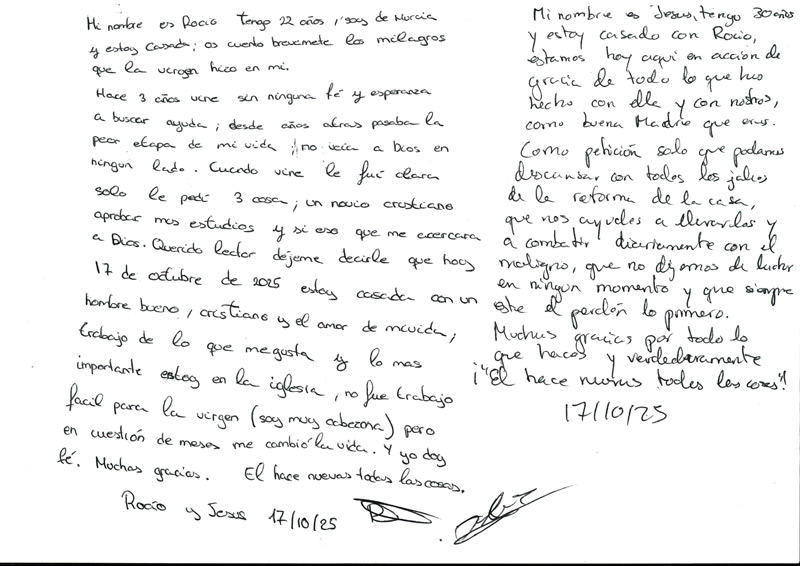 Mi nombre es Rocío Tengo 22 años, soy de Murcia
y estoy casada; os cuento brevemete los milagros
que la virgen hizo en mi.
Hace 3 años vine sin ninguna fé y esperanza
a buscar ayuda; desde años atras pasaba la
peor etapa de mi vida; no veía a Dios en
ningun lado. Cuando vine le fuí clara
solo le pedí 3 cosa; un novio cristiano
aprobar mis estudios y si eso que me acercara
a Dios. Querido lector dejeme decirle que hoy
17 de octubre de 2025 estoy casada con un
hombre bueno, cristiano y el amor de mi vida;
trabajo de lo que me gusta y lo mas
importante estoy en la iglesia, no fue trabajo
facil para la virgen (soy muy cabezona) pero
en cuestión de meses me cambió la vida. Y yo doy
fé. Muchas gracias. El hace nuevas todas las cosas.
Rocío y Jesus 17/10/25
Mi nombre es Jesus, tengo 30 años
y estoy casado con Rocío,
estamos hoy aqui en acción de
gracia de todo lo que has
hecho con ella y con nostros,
como buena Madre que eres.
Como petición solo que podamos
descansar con todos los jaleos
de la reforma de la casa,
que nos ayudes a llevarlas y
a combatir diariamente con el
maligno, que no dejemos de luchar
en ningun momento y que siempre
este el perdón lo primero.
Muchas gracias por todo lo
que haces y verdaderamente
¡"El hace nuevas todas las cosas"!
17/10/25